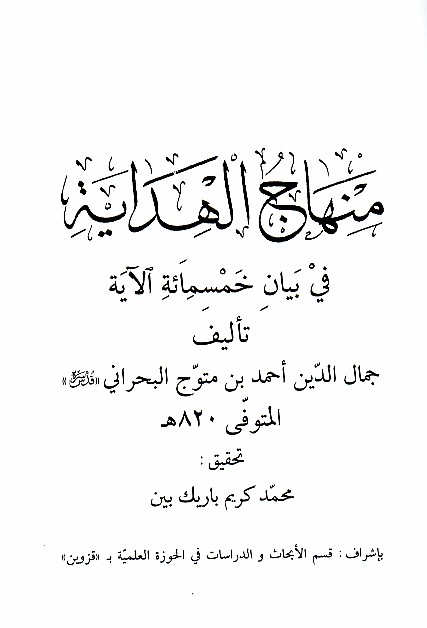 مِنْهَاجُ الْهِدَايَةِ
فِيْ بَيَانِ خَمْسِمِائَةِ الآيَة
تأليف
جمال الدّين أحمد بن متوّج البحراني «قدّس سرّه»
المتوفّى ٨٢٠هـ
تحقيق :
محمّد كريم باريك بين
بإشراف : قسم الأبحاث و الدراسات في الحوزة العلميّة بـ «قزوين»